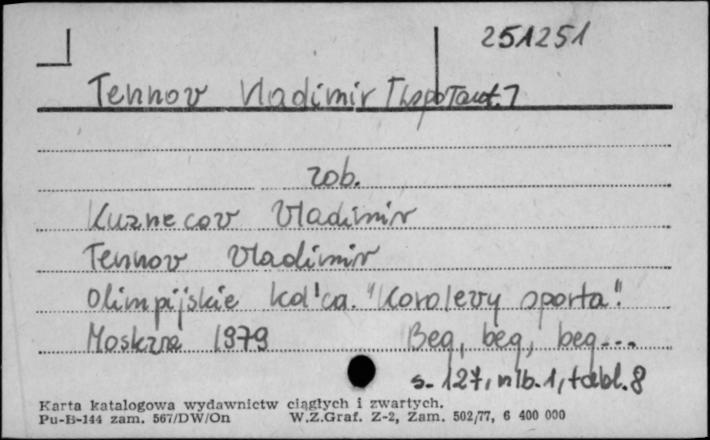 251251
Tennov Vladimir [Współaut.]
zob.
Kuznecov Vladimir
Tennov Vladimir
Olimpijskie kol'ca. "Korolevy sporta".
Moskva 1979 Beg, beg, beg...
s. 127, nlb. 1, tabl. 8
Karta katalogowa wydawnictw ciągłych i zwartych.
Pu-B-144 zam. 567/DW/On W.Z.Graf. Z-2, Zam. 502/77, 6 400 000